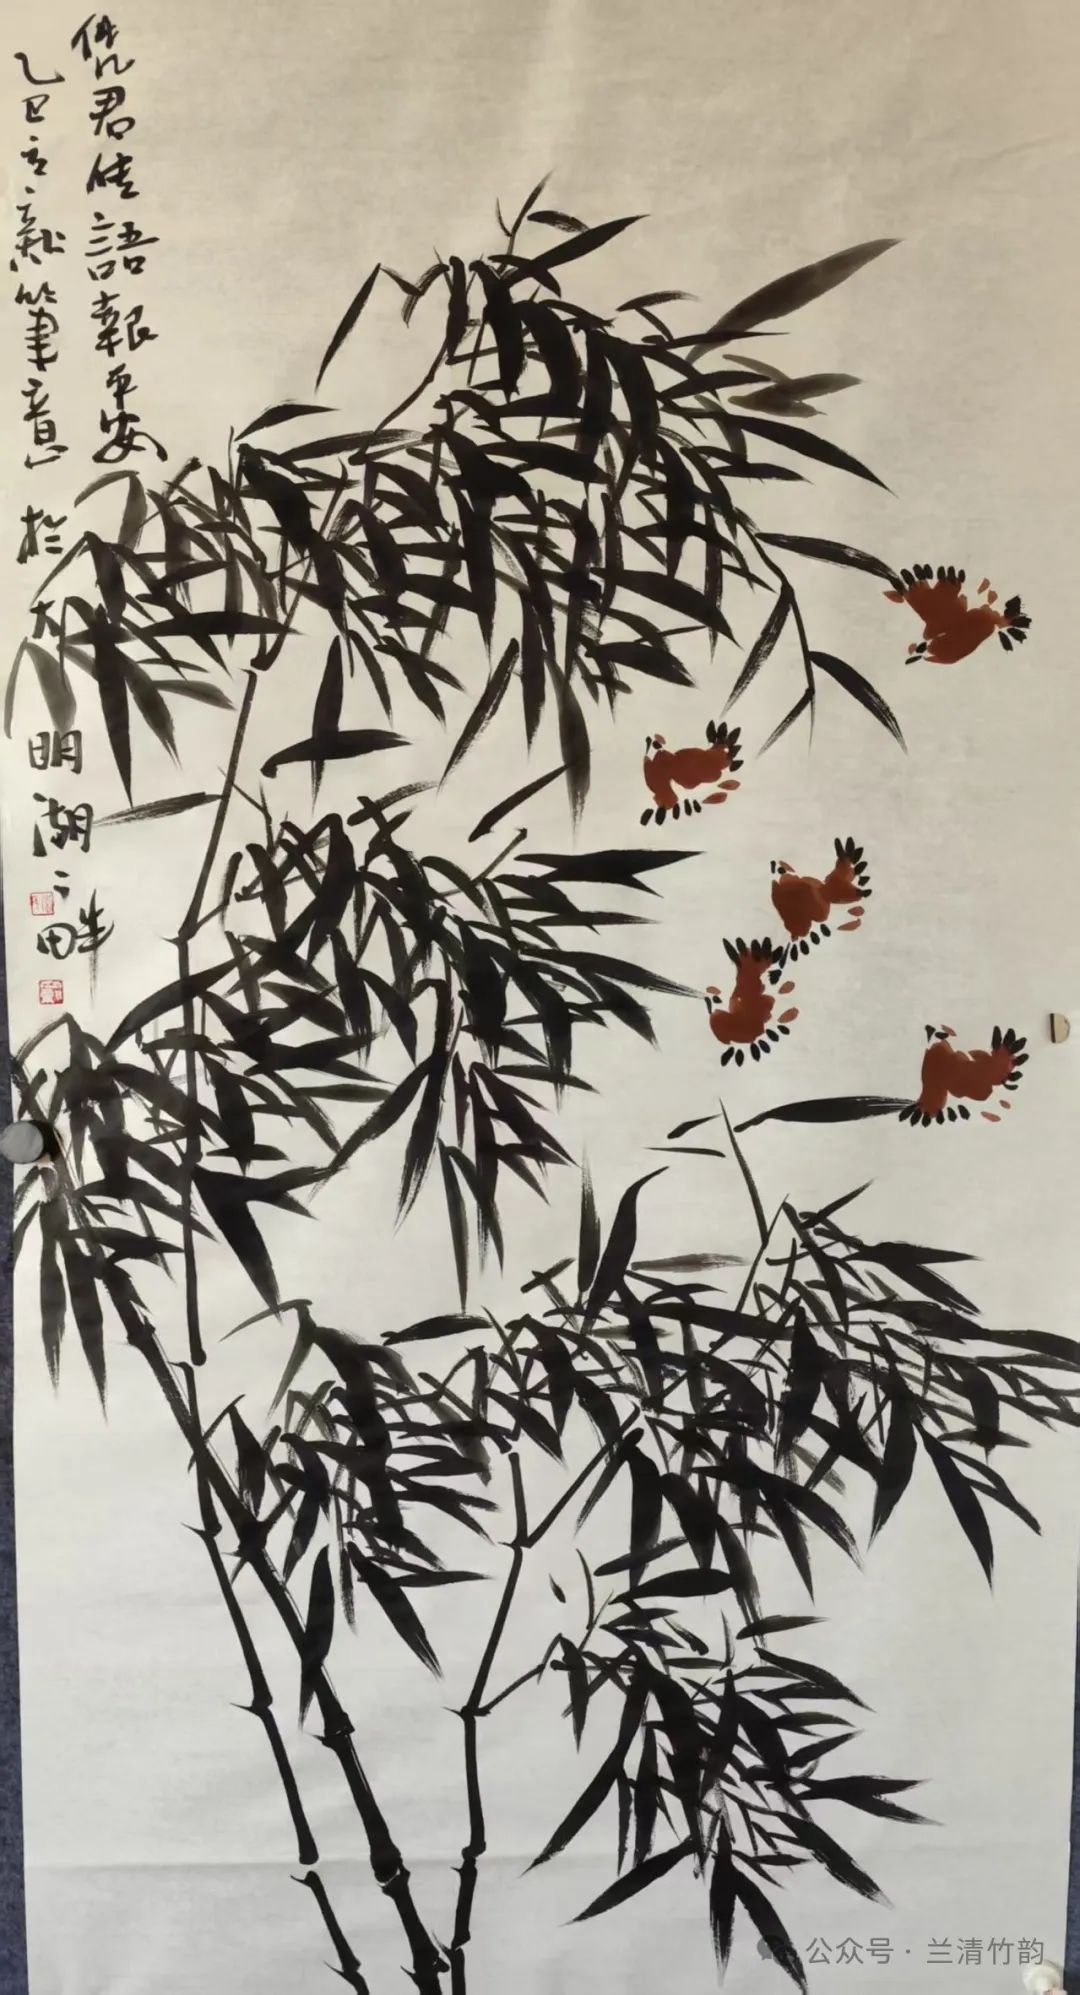 凭君传语報平安
乙巳立秋筆意於大明湖之畔
公众号·兰清竹韵